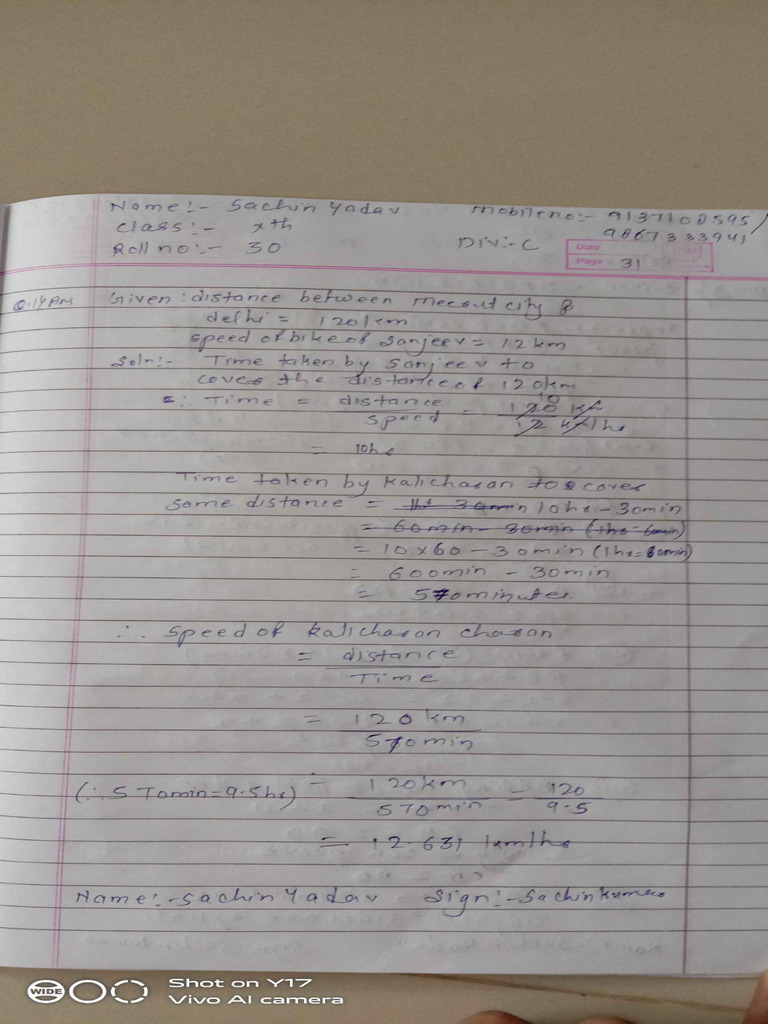 Name:- Sachin Yadav Mobile no:- 9137108595/
Class:- Xth 9867333941
Roll no:- 30 Div:- C
Date
Page 31
Q.14 Ans Given: distance between meerut city &
delhi = 120 km
speed of bike of Sanjeev = 12 km
Soln:- Time taken by Sanjeev to
cover the distance of 120km
∴ Time = distance/speed = 120 km/12 km/hs
10
= 10hs
Time taken by Kalicharan to cover
same distance = 1hs 30min 10hs - 30min
= 60min - 30min (1hs = 60min)
= 10 x 60 - 30min (1hs = 60min)
= 600min - 30min
= 570 minutes.
∴ Speed of Kalicharan charan
= distance
Time
= 120 km
570min
(∵ 570min = 9.5hs) = 120km/570min = 120/9.5
= 12.631 km/hs
Name:- Sachin Yadav Sign:- Sachin kumar
WIDE Shot on Y17
Vivo AI camera